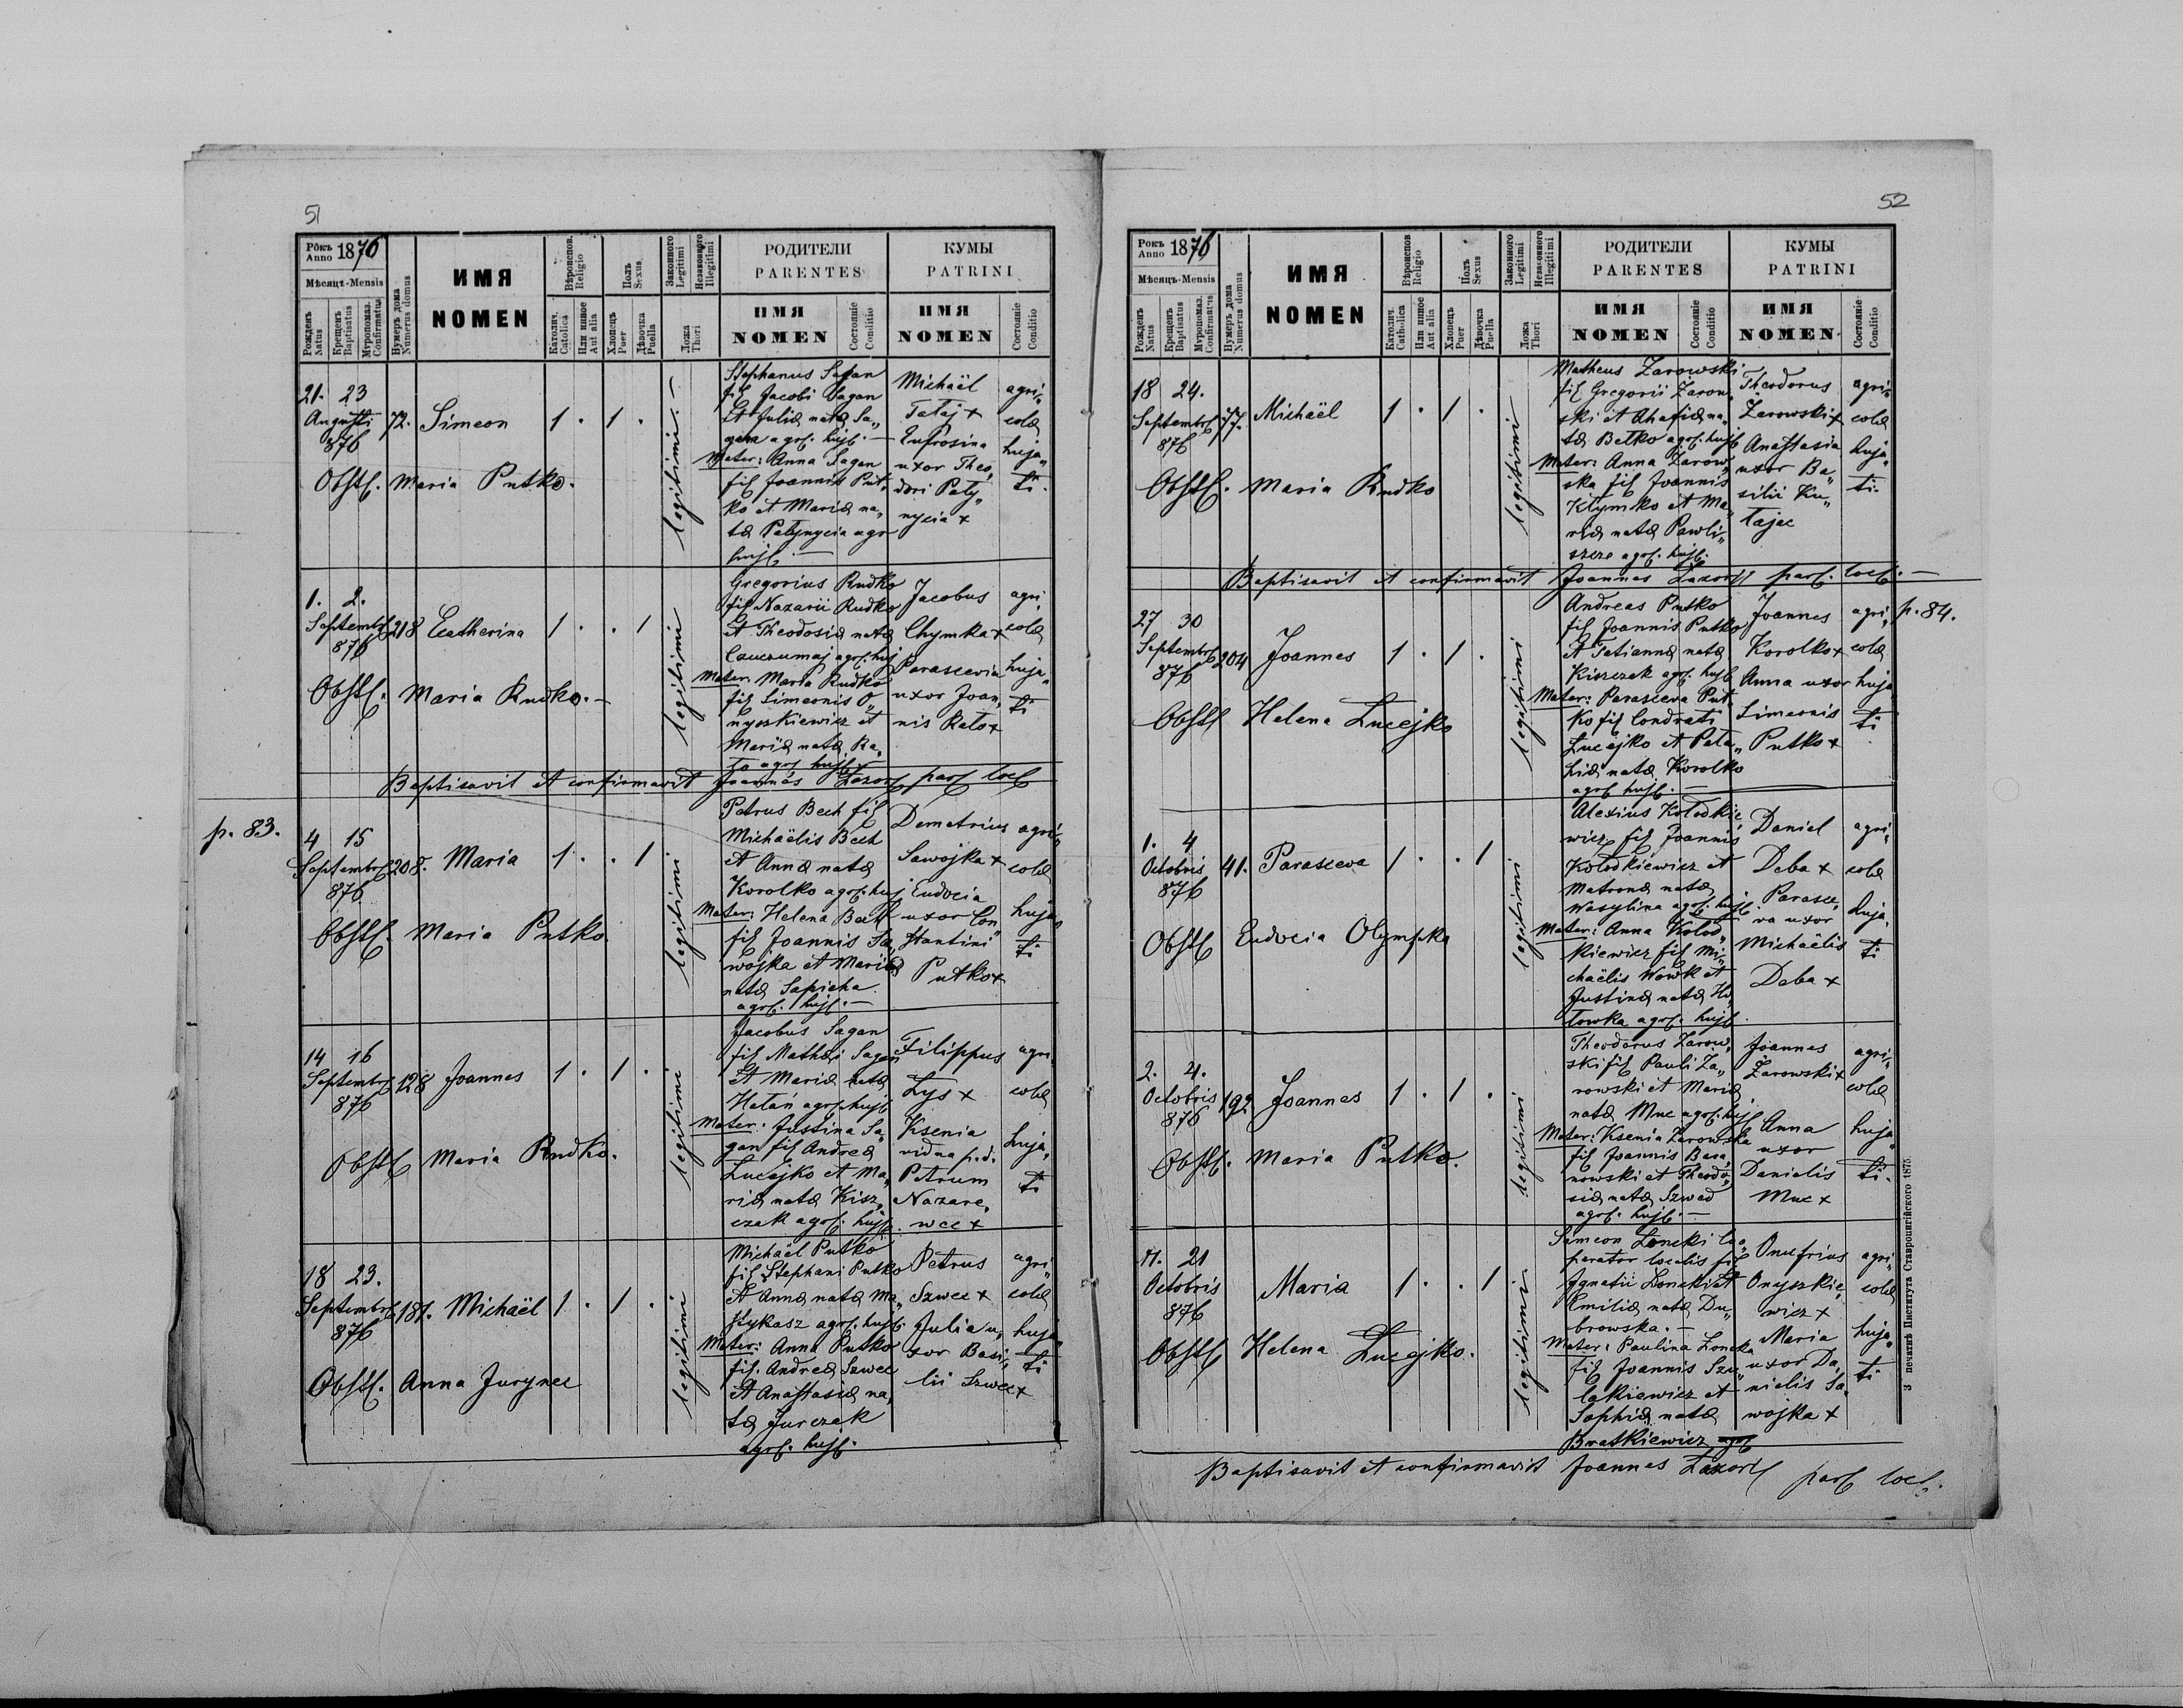 51
Рôкъ Anno 1876
Мѣсяцъ-Mensis
Рожденъ Natus
Крещенъ Baptisatus
Муропомаз. Confirmatus
Нумеръ дома Numerus domus
ИМЯ
NOMEN
Вѣроисповѣ. Religio
Католич. Catolica
Или инное Aut alia
Полъ Sexus
Хлопецъ Puer
Дѣвочка Puella
Законного Legitimi
Незаконного Illegitimi
Ложа Thori
РОДИТЕЛИ
PARENTES
ИМЯ
NOMEN
Состояніе Conditio
КУМЫ
PATRINI
ИМЯ
NOMEN
Состояніе Conditio
21. 23
Augusti
876
72. Simeon 1 . 1 .
Obstf. Maria Putko.
legitimi.—
Stephanus Sagan
fil Jacobi Sagan
et Julia nata Sa„
gan agr. hujt.—
Mater: Anna Sagan
fil Joannis Put„
ko et Maria na„
ta Patynycia agr
hujt.—
Michaël
Tataj +
Eufrosina
uxor Theo„
dori Paty„
nycia +
agri„
cola
huja„
ti.
1. 2.
Septembr
876
218 Ecatherina 1 . . 1
Obstf. Maria Rudko.—
legitimi
Gregorius Rudko
fil Nazarii Rudko
et Theodosia nata
agr. huj
Mater: Maria Rudko
fil Simeonis O„
nyszkiewicz et
Maria nata Ra„
to agr hujt.
Jacobus
Chymka +
Parascevia
uxor Joan„
nis Rato +
agri„
cola
huja„
ti
Baptisavit et confirmavit Joannes Lazor parf locf
p. 83.
4 15
Septembr
876
208. Maria 1 . . 1
Obstf. Maria Putko.
legitimi
Petrus Bech fil
Michaëlis Bech
et Anna nata
Korolko agr. huj
Mater: Helena Bech
fil Joannis Sa„
wojka et Maria
nata Sapieha
agr. hujt.—
Demetrius
Sawojka +
Eudocia
uxor Con„
stantini
Putko +
agri„
cola
huja„
ti
14 16
Septembr
876
128 Joannes 1 . 1 .
Obstf Maria Rudko.
legitimi
Jacobus Sagan
fil Mathai Sagan
et Maria nata
Hatań agr. hujt
Mater: Justina Sa„
gan fil Andrea
Lucejko et Ma„
ria nata Kisz„
czak agr. hujt.
Filippus
Lys +
Ksenia
vidua p.d.
Petrum
Nazare„
wcc +
agri„
cola
huja„
ti
18 23.
Septembr
876
187. Michaël 1 . 1 .
Obstf. Anna Jurynec
legitimi
Michaël Putko
fil Stephani Putko
et Anna nata Ma„
stykasz agr. hujt.
Mater: Anna Putko
fil. Andrea Szwec
et Anastasia na„
ta Jurczak
agr. hujt.
Petrus
Szwec +
Julia u„
xor Basi„
lii Szwec +
agri„
cola
huja„
ti
52
Рокъ Anno 1876
Мѣсяцъ-Mensis
Рожденъ Natus
Крещенъ Baptisatus
Муропомаз. Confirmatus
Нумеръ дома Numerus domus
ИМЯ
NOMEN
Вѣроисповѣ Religio
Католич. Catholica
Или инное Aut alia
Полъ Sexus
Хлопецъ Puer
Дѣвочка Puella
Законного Legitimi
Незаконного Illegitimi
Ложа Thori
РОДИТЕЛИ
PARENTES
ИМЯ
NOMEN
Состояніе Conditio
КУМЫ
PATRINI
ИМЯ
NOMEN
Состояніе Conditio
18 24.
Septembr
876
77. Michaël 1 . 1 .
Obstf. Maria Rudko
legitimi
Matheus Zarowski
fil Gregorii Zarow„
ski et Ahafia na„
ta Betko agr. hujt
Mater: Anna Zarow„
ska fil Joannis
Klymko et Ma„
ria nata Pawli„
szcze agr. hujt.
Theodorus
Zarowski +
Anastasia
uxor Ba„
silii Ku„
tajec
agri„
cola
huja„
ti.
Baptisavit et confirmavit Joannes Lazor parf. locf.—
p. 84.
27 30
Septembr
876
204 Joannes 1 . 1 .
Obstf Helena Lucejko
legitimi
Andreas Putko
fil Joannis Putko
et Tatianna nata
Kiszczak agr. hujt
Mater: Parasceva Put„
ko fil Condrati
Lucejko et Pela„
hia nata Korolko
agr hujt.—
Joannes
Korolko +
Anna uxor
Simeonis
Putko +
agri„
cola
huja„
ti
1. 4
Octobris
876
41. Parasceva 1 . . 1
Obstf Eudocia Olympka
legitimi
Alexius Kolodkie„
wicz fil Joannis
Kolodkiewicz et
Matrona nata
Wasylina agr. hujt
Mater: Anna Kolod„
kiewicz fil Mi„
chaëlis Wowk et
Justina nata Ho„
lowka agr. hujt.
Daniel
Deba +
Parasce„
va uxor
Michaëlis
Deba +
agri„
cola
huja„
ti
2. 4.
Octobris
876
192 Joannes 1 . 1 .
Obstf. Maria Putko.
legitimi
Theodorus Zarow„
ski fil Pauli Za„
rowski et Maria
nata Muc agr. hujt
Mater: Ksenia Zarowska
fil Joannis Bara„
nowski et Theodo„
sia nata Szwed
agr. hujt.—
Joannes
Zarowski +
Anna
uxor
Danielis
Muc +
agri„
cola
huja„
ti.
11. 21
Octobris
876
Maria 1 . . 1
Obstf Helena Lucejko.
legitimi
Symeon Loncki Coo„
perator localis fil
Ignatii Loncki et
Emilia nata Du„
browska.—
Mater: Paulina Loncka
fil Joannis Szu„
lakiewicz et
Sophia nata
Bratkiewicz
Onufrius
Onyszkie„
wicz +
Maria
uxor Da„
nielis Sa„
wojka +
agri„
cola
huja„
ti
Baptisavit et confirmavit Joannes Lazor parf locf.
З печатнѣ Института Ставропигійского 1875.